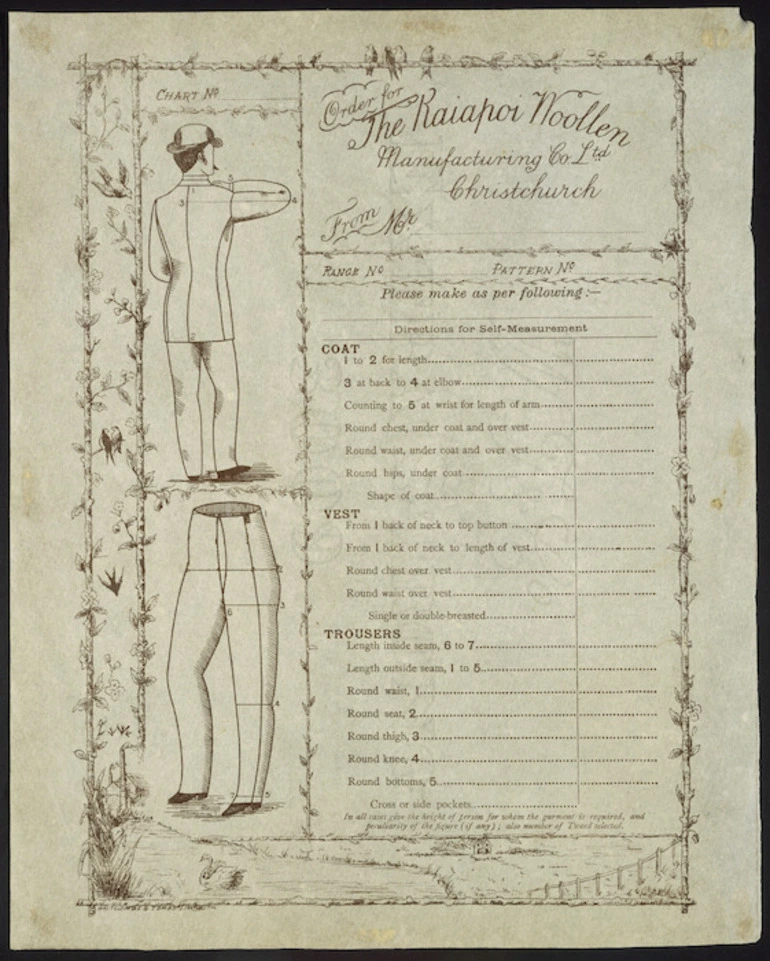 CHART No
Order for
The Kaiapoi Woollen
Manufacturing Co Ltd
Christchurch
From Mr.
RANGE No PATTERN No
Please make as per following:—
Directions for Self-Measurement
COAT
1 to 2 for length
3 at back to 4 at elbow
Counting to 5 at wrist for length of arm
Round chest, under coat and over vest
Round waist, under coat and over vest
Round hips, under coat
Shape of coat
VEST
From 1 back of neck to top button
From 1 back of neck to length of vest
Round chest over vest
Round waist over vest
Single or double-breasted
TROUSERS
Length inside seam, 6 to 7
Length outside seam, 1 to 5
Round waist, 1
Round seat, 2
Round thigh, 3
Round knee, 4
Round bottoms, 5
Cross or side pockets
In all cases give the height of person for whom the garment is required, and
peculiarity of the figure (if any); also number of Tweed selected.